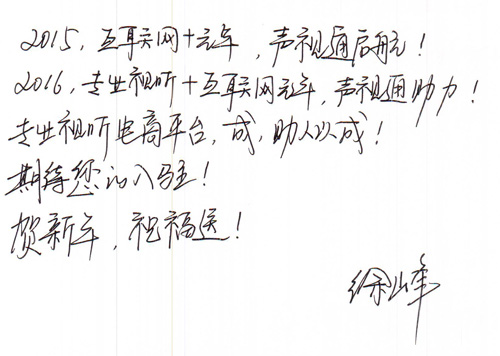 2015,互联网+元年,声视通启航!
2016,专业视听+互联网元年,声视通助力!
专业视听电商平台,成,助人以成!
期待您的入驻!
贺新年,祝福送!
徐峰